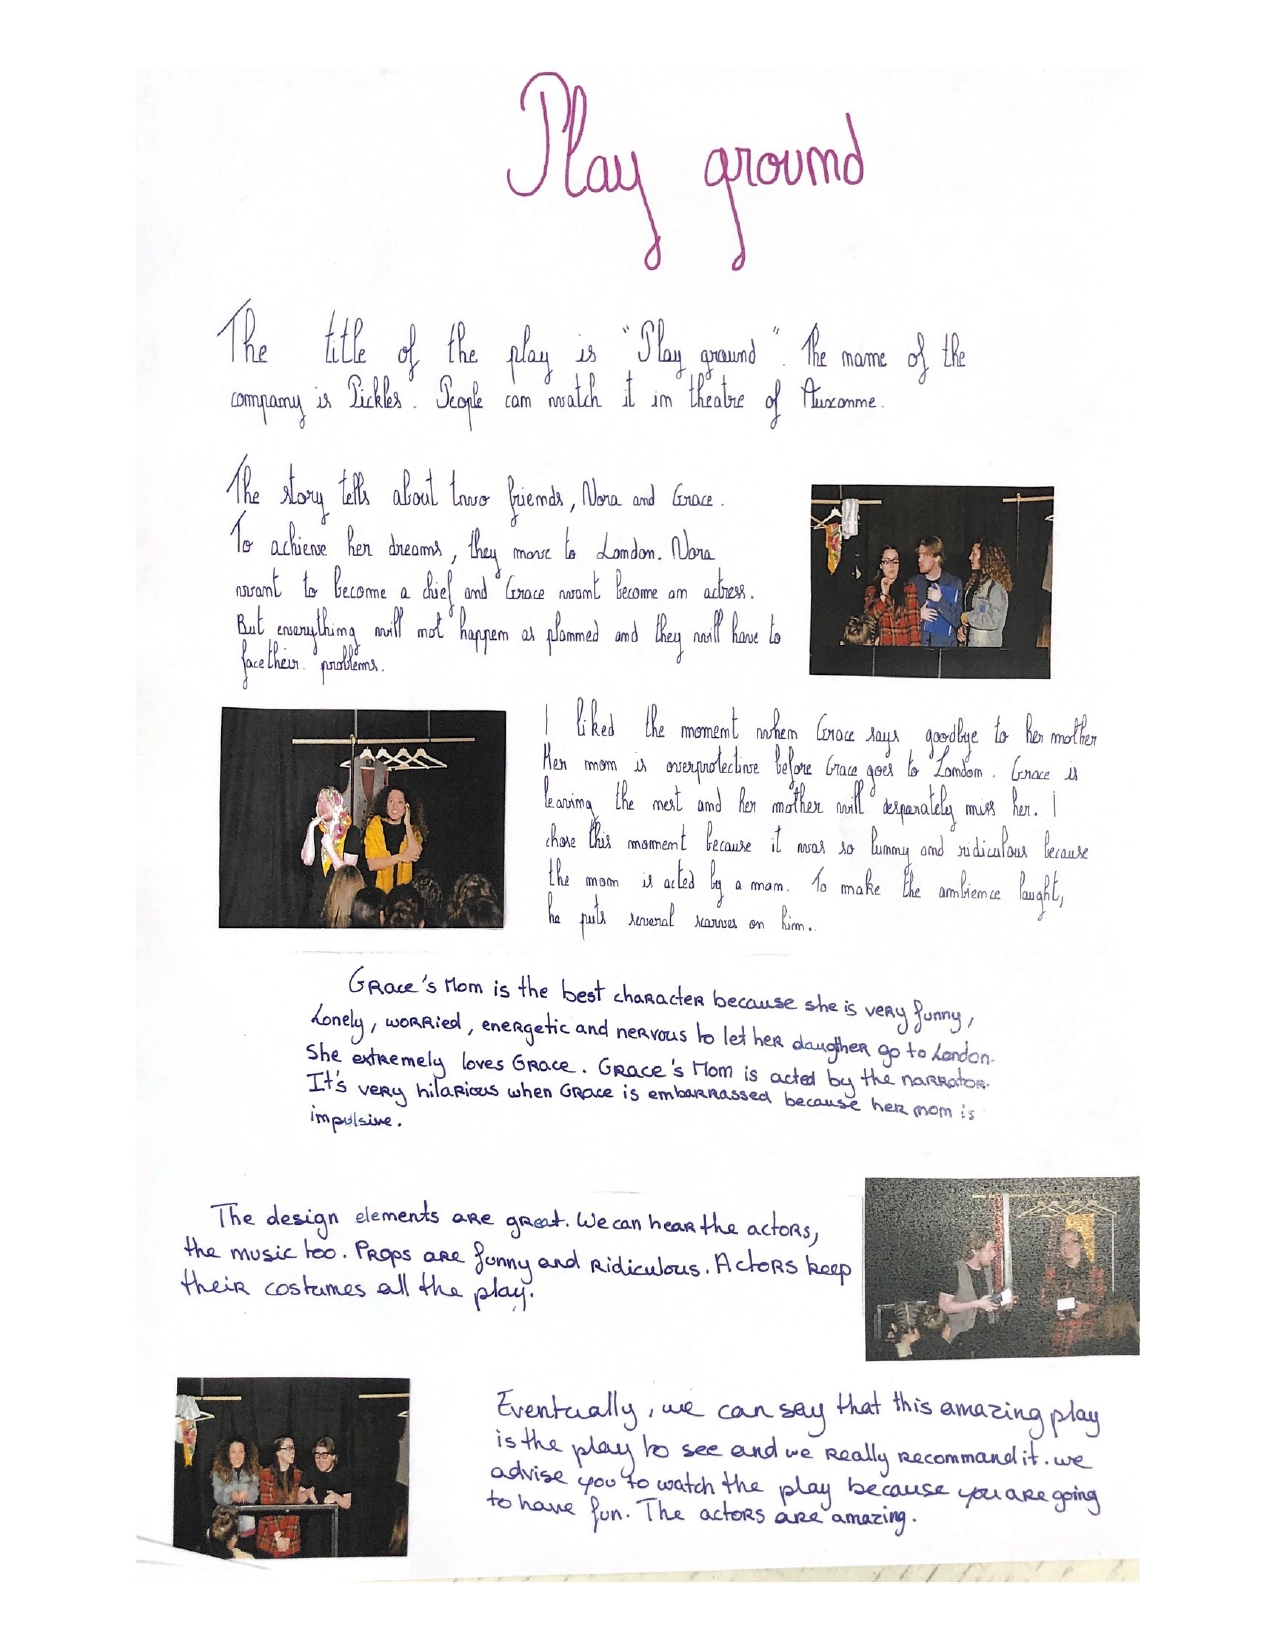 Play ground
The title of the play is "Play ground". The name of the
company is Pickles. People can watch it in theatre of Auxonne.
The story tells about two friends, Nora and Grace.
To achieve her dreams, they move to London. Nora
want to become a chief and Grace want become an actress.
But everything will not happen as planned and they will have to
face their problems.
I liked the moment when Grace says goodbye to her mother
Her mom is overprotective before Grace goes to London. Grace is
leaving the nest and her mother will desperately miss her. I
chose this moment because it was so funny and ridiculous because
the mom is acted by a man. To make the ambience laught,
he puts several scarves on him.
Grace's Mom is the best character because she is very funny,
Lonely, worried, energetic and nervous to let her daugther go to London.
She extremely loves Grace. Grace's Mom is acted by the narrator.
It's very hilarious when Grace is embarrassed because her mom is
impulsive.
The design elements are great. We can hear the actors,
the music too. Props are funny and ridiculous. Actors keep
their costumes all the play.
Eventually, we can say that this amazing play
is the play to see and we really recommand it. we
advise you to watch the play because you are going
to have fun. The actors are amazing.